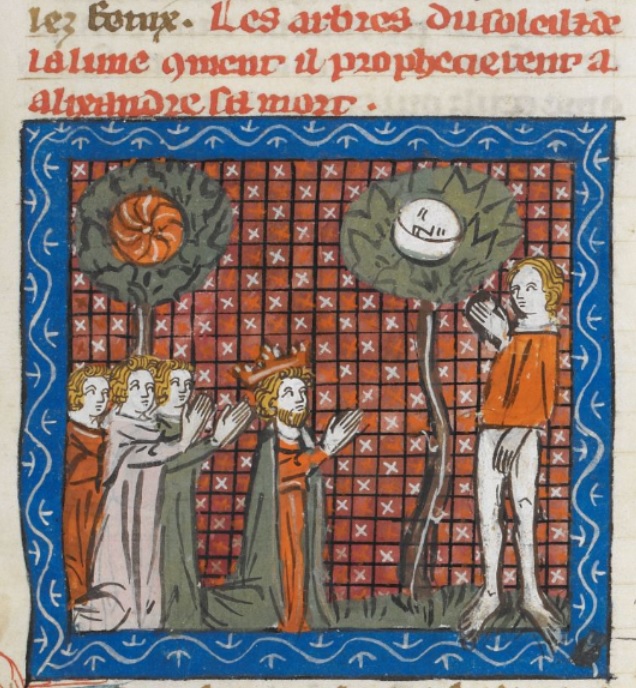 lez bonix. Les arbres du soleil z de
la lune 9ment il prophecierent a
alixandre sa mort.